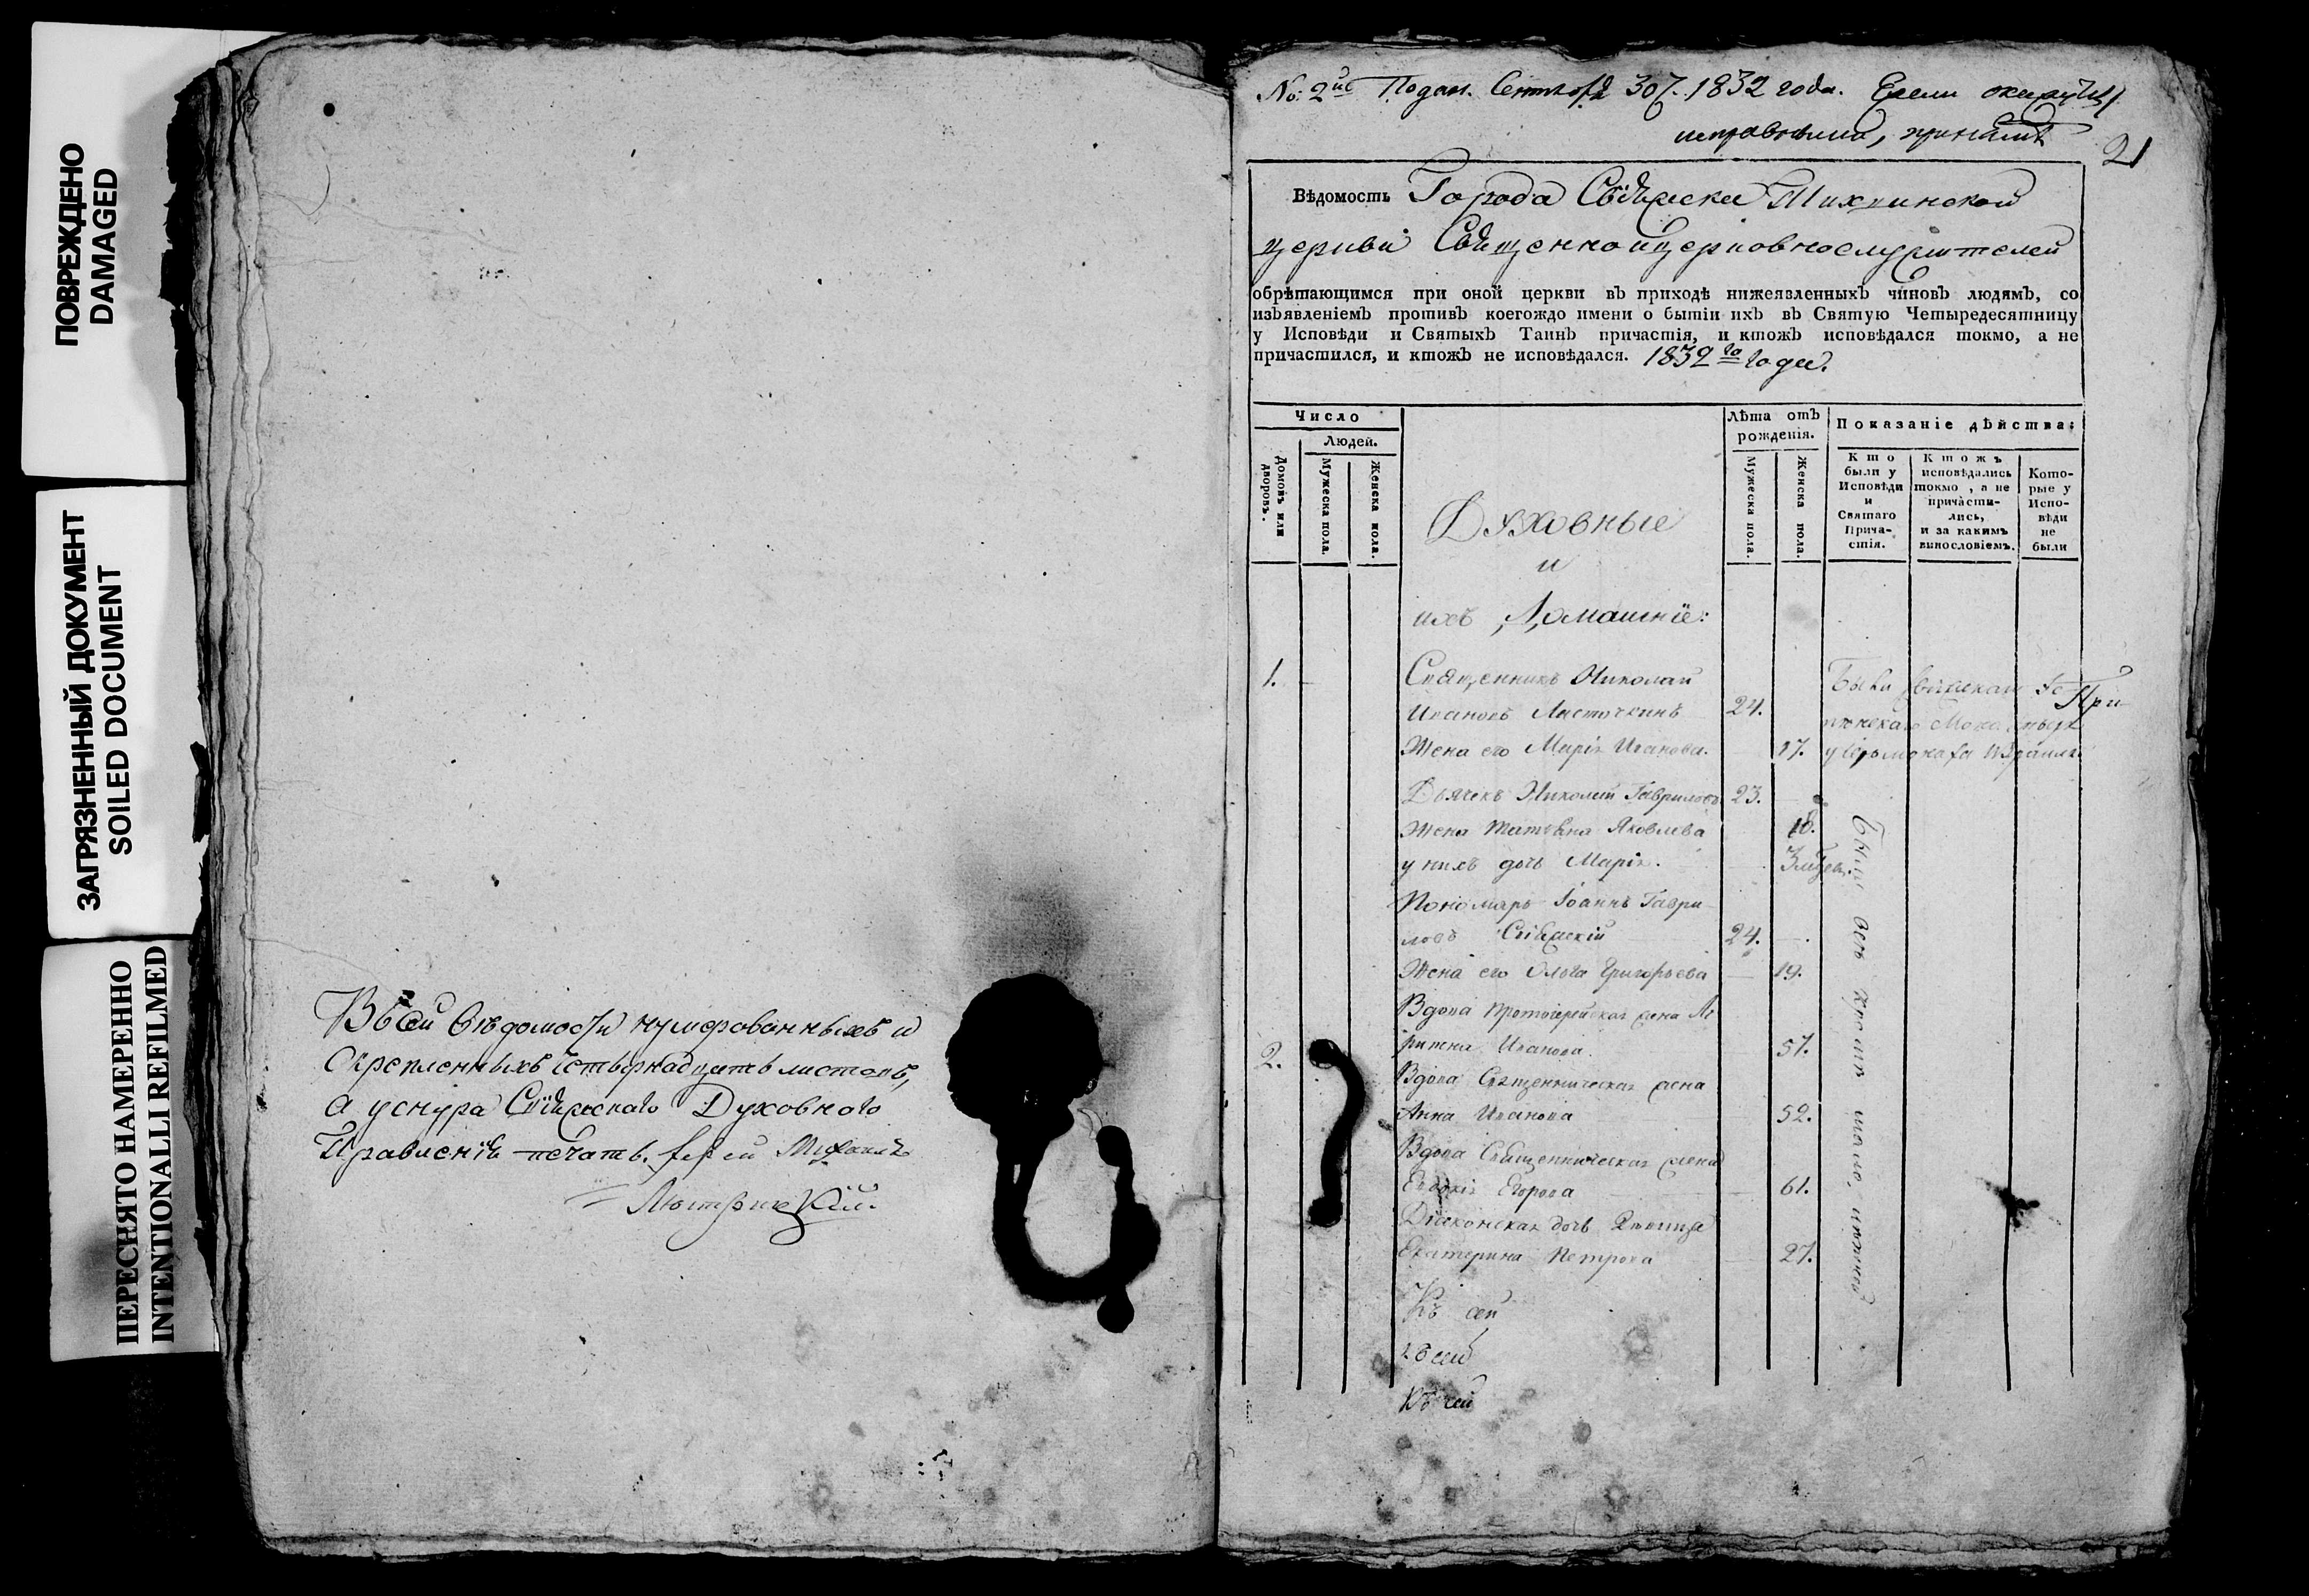 ПОВРЕЖДЕНО
DAMAGED
ЗАГРЯЗНЕННЫЙ ДОКУМЕНТ
SOILED DOCUMENT
ПЕРЕСНЯТО НАМЕРЕННО
INTENTIONALLI REFILMED
Въ сей вѣдомости нумерованныхъ и
скрепленныхъ четырнадцать листовъ,
а у снура Свіяжскаго Духовнаго
Правленія печать.
No: 2й Подан. Сентября 30 1832 года. Ежели окажутся
исправными, принять
21
Вѣдомость Города Свіяжска Тихвинской
церкви Священно и церковнослужителей
обрѣтающимся при оной церкви въ приходѣ нижеявленныхъ чиновъ людямъ, со
изъявленіемъ противъ коегождо имени о бытіи ихъ въ Святую Четыредесятницу
у Исповѣди и Святыхъ Таинъ причастія, и ктожъ исповѣдался токмо, а не
причастился, и ктожъ не исповѣдался. 1832го года.
Число
Людей.
Домовъ или дворовъ.
Мужеска пола.
Женска пола.
Лѣта отъ рожденія.
Мужеска пола.
Женска пола.
Показаніе дѣйства:
Кто были у Исповѣди и Святаго Причастія.
Ктожъ исповѣдались токмо, а не причастились, и за какимъ винословіемъ.
Которые у Исповѣди не были
Духовные
и
ихъ Домашніе:
1. Священникъ Николай
Ивановъ Ласточкинъ 24.
Жена его Марія Иванова. 17.
Были Свіяжскаго
монастыря
у Іеромонаха Израиля
Дьячекъ Николай Гавриловъ 23.
Жена Татьяна Яковлева 18.
у нихъ дочь Марія.
Пономарь Іоаннъ Гаври
ловъ Свіяжскій 24.
Жена его Ольга Григорьева 19.
Вдова Протоіерейская жена
Иванова. 57.
2.
Вдова Священническая жена
Анна Иванова 52.
Вдова Священническая жена
Евдокія Егорова 61.
Діаконская дочь Дѣвица
Екатерина Петрова 27.
Къ сей
къ сей
Къ сей